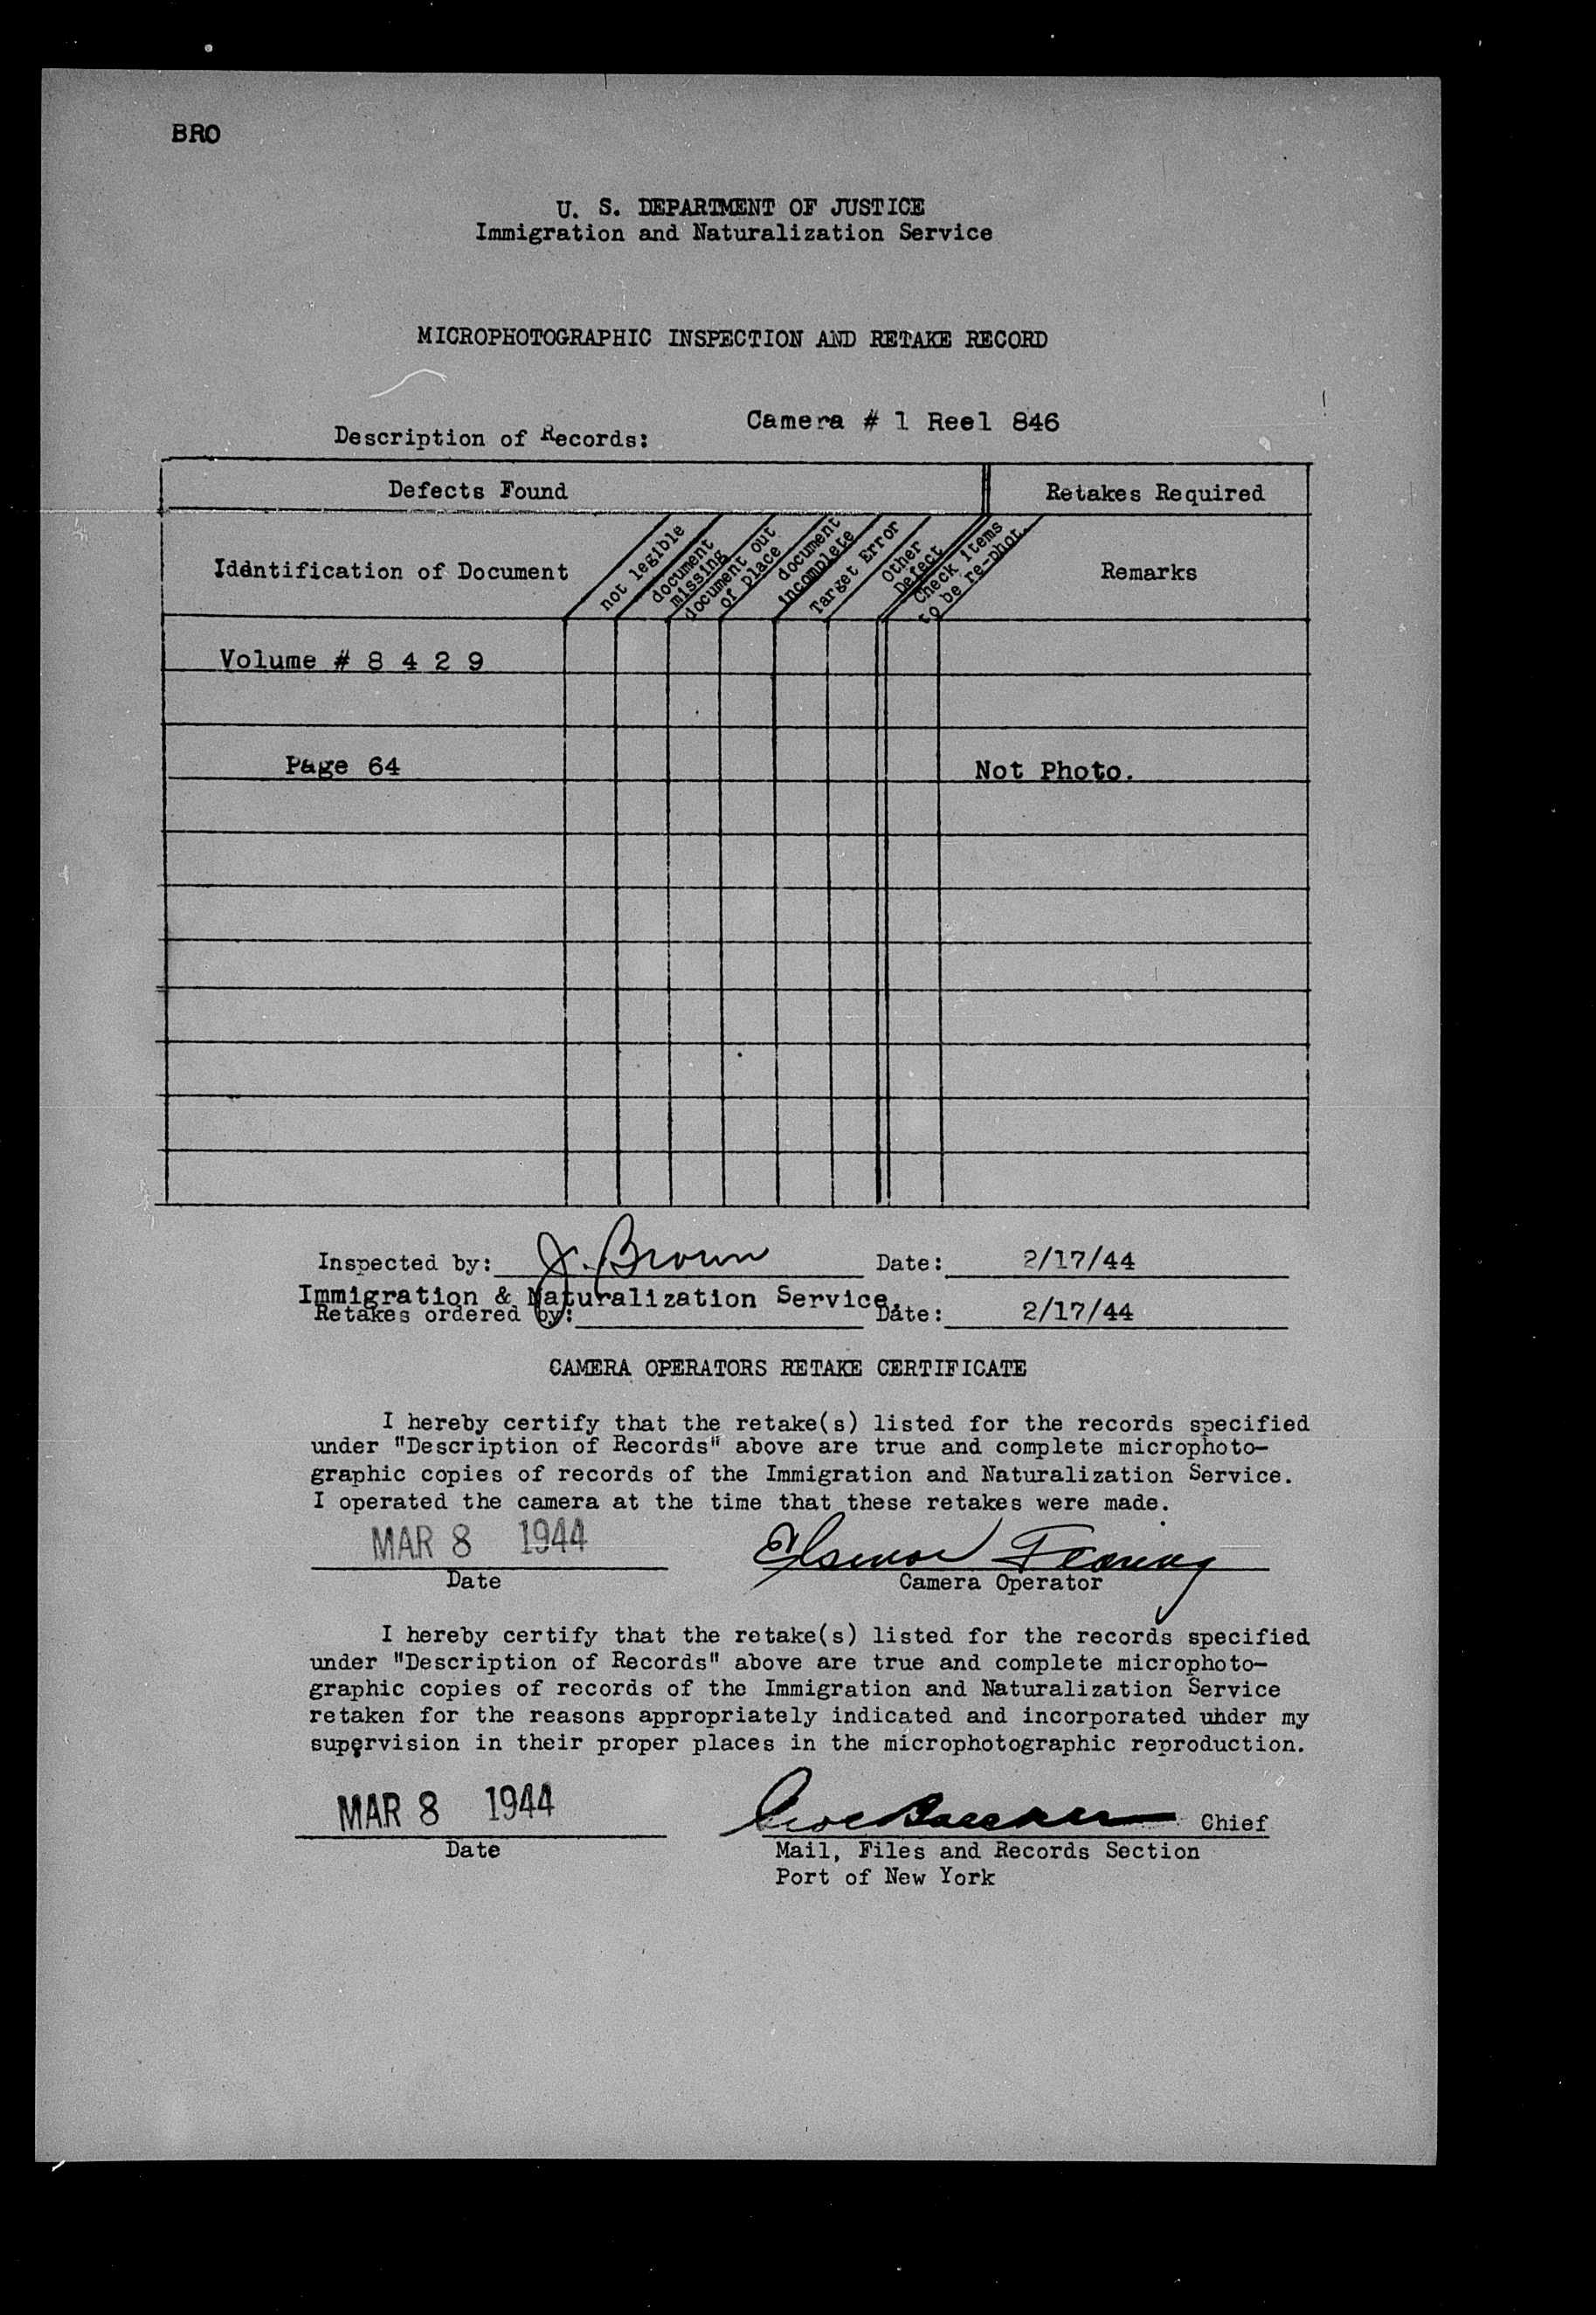 BRO
U. S. DEPARTMENT OF JUSTICE
Immigration and Naturalization Service
MICROPHOTOGRAPHIC INSPECTION AND RETAKE RECORD
Camera # 1 Reel 846
Description of Records:
Defects Found
Retakes Required
Idäntification of Document
not legible
document missing
document out of place
document incomplete
Target Error
Other Defect
Check items to be re-phot.
Remarks
Volume # 8 4 2 9
Page 64
Not Photo.
Inspected by: J. Brown Date: 2/17/44
Immigration & Naturalization Service.
Retakes ordered by: Date: 2/17/44
CAMERA OPERATORS RETAKE CERTIFICATE
I hereby certify that the retake(s) listed for the records specified
under "Description of Records" above are true and complete microphoto-
graphic copies of records of the Immigration and Naturalization Service.
I operated the camera at the time that these retakes were made.
MAR 8 1944
Date
Camera Operator
I hereby certify that the retake(s) listed for the records specified
under "Description of Records" above are true and complete microphoto-
graphic copies of records of the Immigration and Naturalization Service
retaken for the reasons appropriately indicated and incorporated under my
supervision in their proper places in the microphotographic reproduction.
MAR 8 1944
Chief
Date
Mail, Files and Records Section
Port of New York